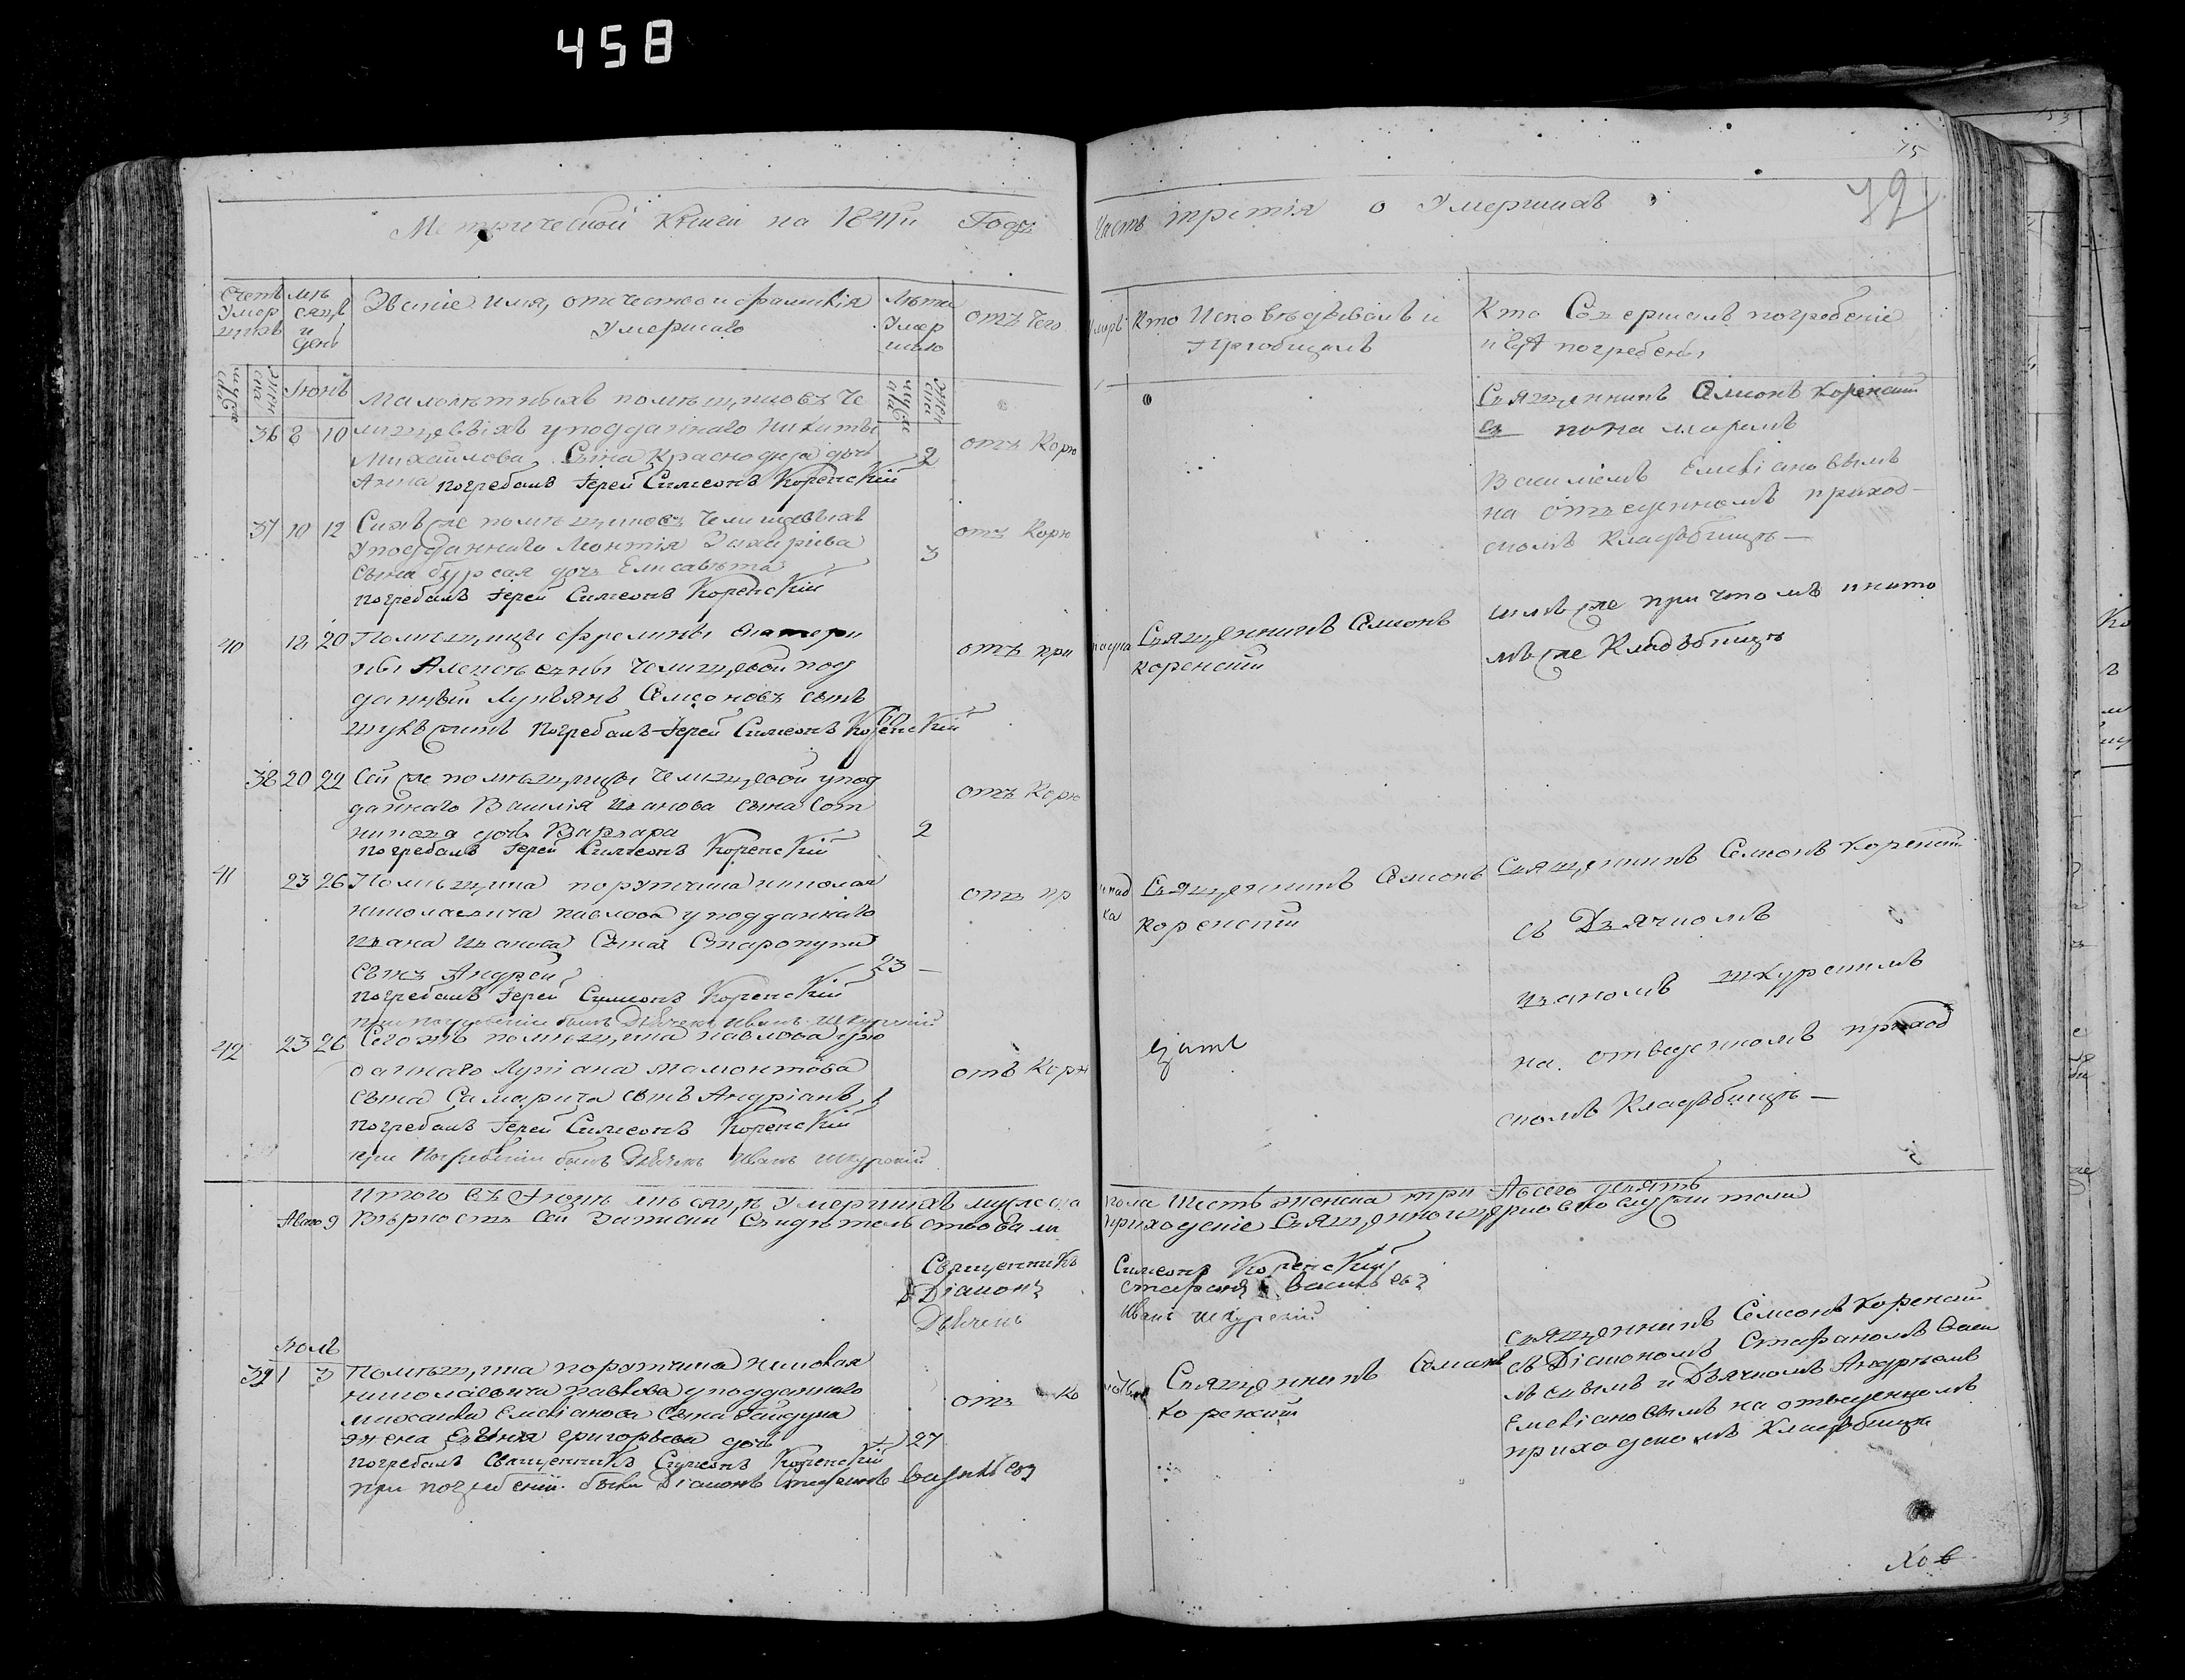 458
75
72
Метрической Книги на 1841й Годъ
Часть третія о Умершихъ
Счетъ Умер шихъ
Мѣ сяцъ и день
Званіе имя, отчество и фамилія Умершаго
Лѣта Умер шаго
отъ чего
умеръ
Кто Исповѣдывалъ и Пріобщалъ
Кто Совершалъ погребеніе и гдѣ погребены
муже ска
жен ска
Июнь
муже ска
жен ска
36 8 10
Малолѣтныхъ помѣщиковъ Че
лищевыхъ у подданнаго Никиты
Михайлова Сына Краснодѣда дочь
Анна погребалъ Іерей Симеонъ Коренскій
2
отъ Корю
Священникъ Симеонъ Коренскій
съ пономаремъ
Василіемъ Емельяновымъ
на отведенномъ приход
скомъ Кладбищѣ —
37 10 12
Сихъ же помѣщиковъ Челищевыхъ
У подданнаго Монтія Захаріева
Сына бурсая дочь Елисавѣта
погребалъ Іерей Симеонъ Коренскій
3
отъ Корю
40 18 20
Помѣщицы фрелины Екатери
ны Алексѣевны Челищевой под
данный Лукьянъ Симоновъ сынъ
погребалъ Іерей Симеонъ Коренскій
60
отъ при
падка
Священникъ Симеонъ
Коренскій
имъ же причтомъ и на то
мъ же Кладбищѣ
38 20 22
Сей же помѣщицы Челищевой у под
даннаго Василія Иванова сына Сот
никова дочь Варвара
погребалъ Іерей Симеонъ Коренскій
2
отъ Корю
41 23 26
Помѣщика поручика Николая
Николаевича Павлова у подданнаго
Ивана Иванова Сына
Сынъ Андрей
погребалъ Іерей Симеонъ Коренскій
при погребеніи былъ Дьячекъ Иванъ Шкурскій
23 —
отъ пр
ипад
ка
Священникъ Симеонъ
Коренскій
Священникъ Симеонъ Коренскій
съ Дьячкомъ
Иваномъ Шкурскимъ
на отведенномъ приход
скомъ Кладбищѣ —
42 23 26
Сего жъ помѣщика Павлова у по
даннаго Лукіана Мамонтова
Сына Самарича сынъ Андріанъ 1
погребалъ Іерей Симеонъ Коренскій
при Погребеніи былъ Дьячекъ Иванъ Шкурскій
отъ Корю
Итого въ Іюнѣ мѣсяцѣ умершихъ мужеска
пола Шесть женска три А всего девять
Вѣрность сей записи Свидѣтельствовали
приходскіе Священноцерковнослужители
Священникъ
Симеонъ Коренскій
Діаконъ
Стефанъ Васильевъ
Дьячекъ
Иванъ Шкурскій
Июль
39 1 3
Помѣщика поручика Николая
Николаевича Павлова у подданнаго
Михаила Емеліанова Сына Гайдука
жена Григорьева дочь
погребалъ Священникъ Симеонъ Коренскій
при погребеніи были Діаконъ Стефанъ Васильевъ
27
отъ
Священникъ Симеонъ
Коренскій
Священникъ Симеонъ Коренскій
съ Діакономъ Стефаномъ Васи
льевымъ и Дьячкомъ Андреемъ
Емеліановымъ на отведенномъ
приходскомъ Кладбищѣ